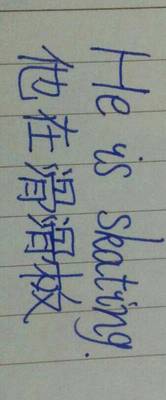 He is skating.
他在滑滑板